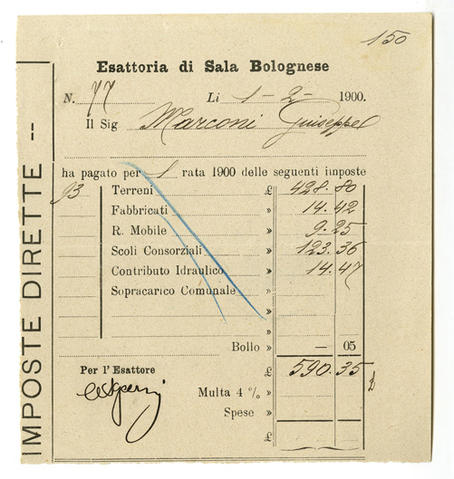 150
Esattoria di Sala Bolognese
N. 77 Li 1-2- 1900.
Il Sig Marconi Giuseppe
ha pagato per 1 rata 1900 delle seguenti imposte
93 Terreni £ 428.80
Fabbricati » 14.42
R. Mobile » 9.25
Scoli Consorziali » 123.36
Contributo Idraulico » 14.47
Sopracarico Comunale »
»
»
Bollo » — 05
Per l'Esattore £ 590.35
Multa 4 % »
Spese »
£
IMPOSTE DIRETTE --